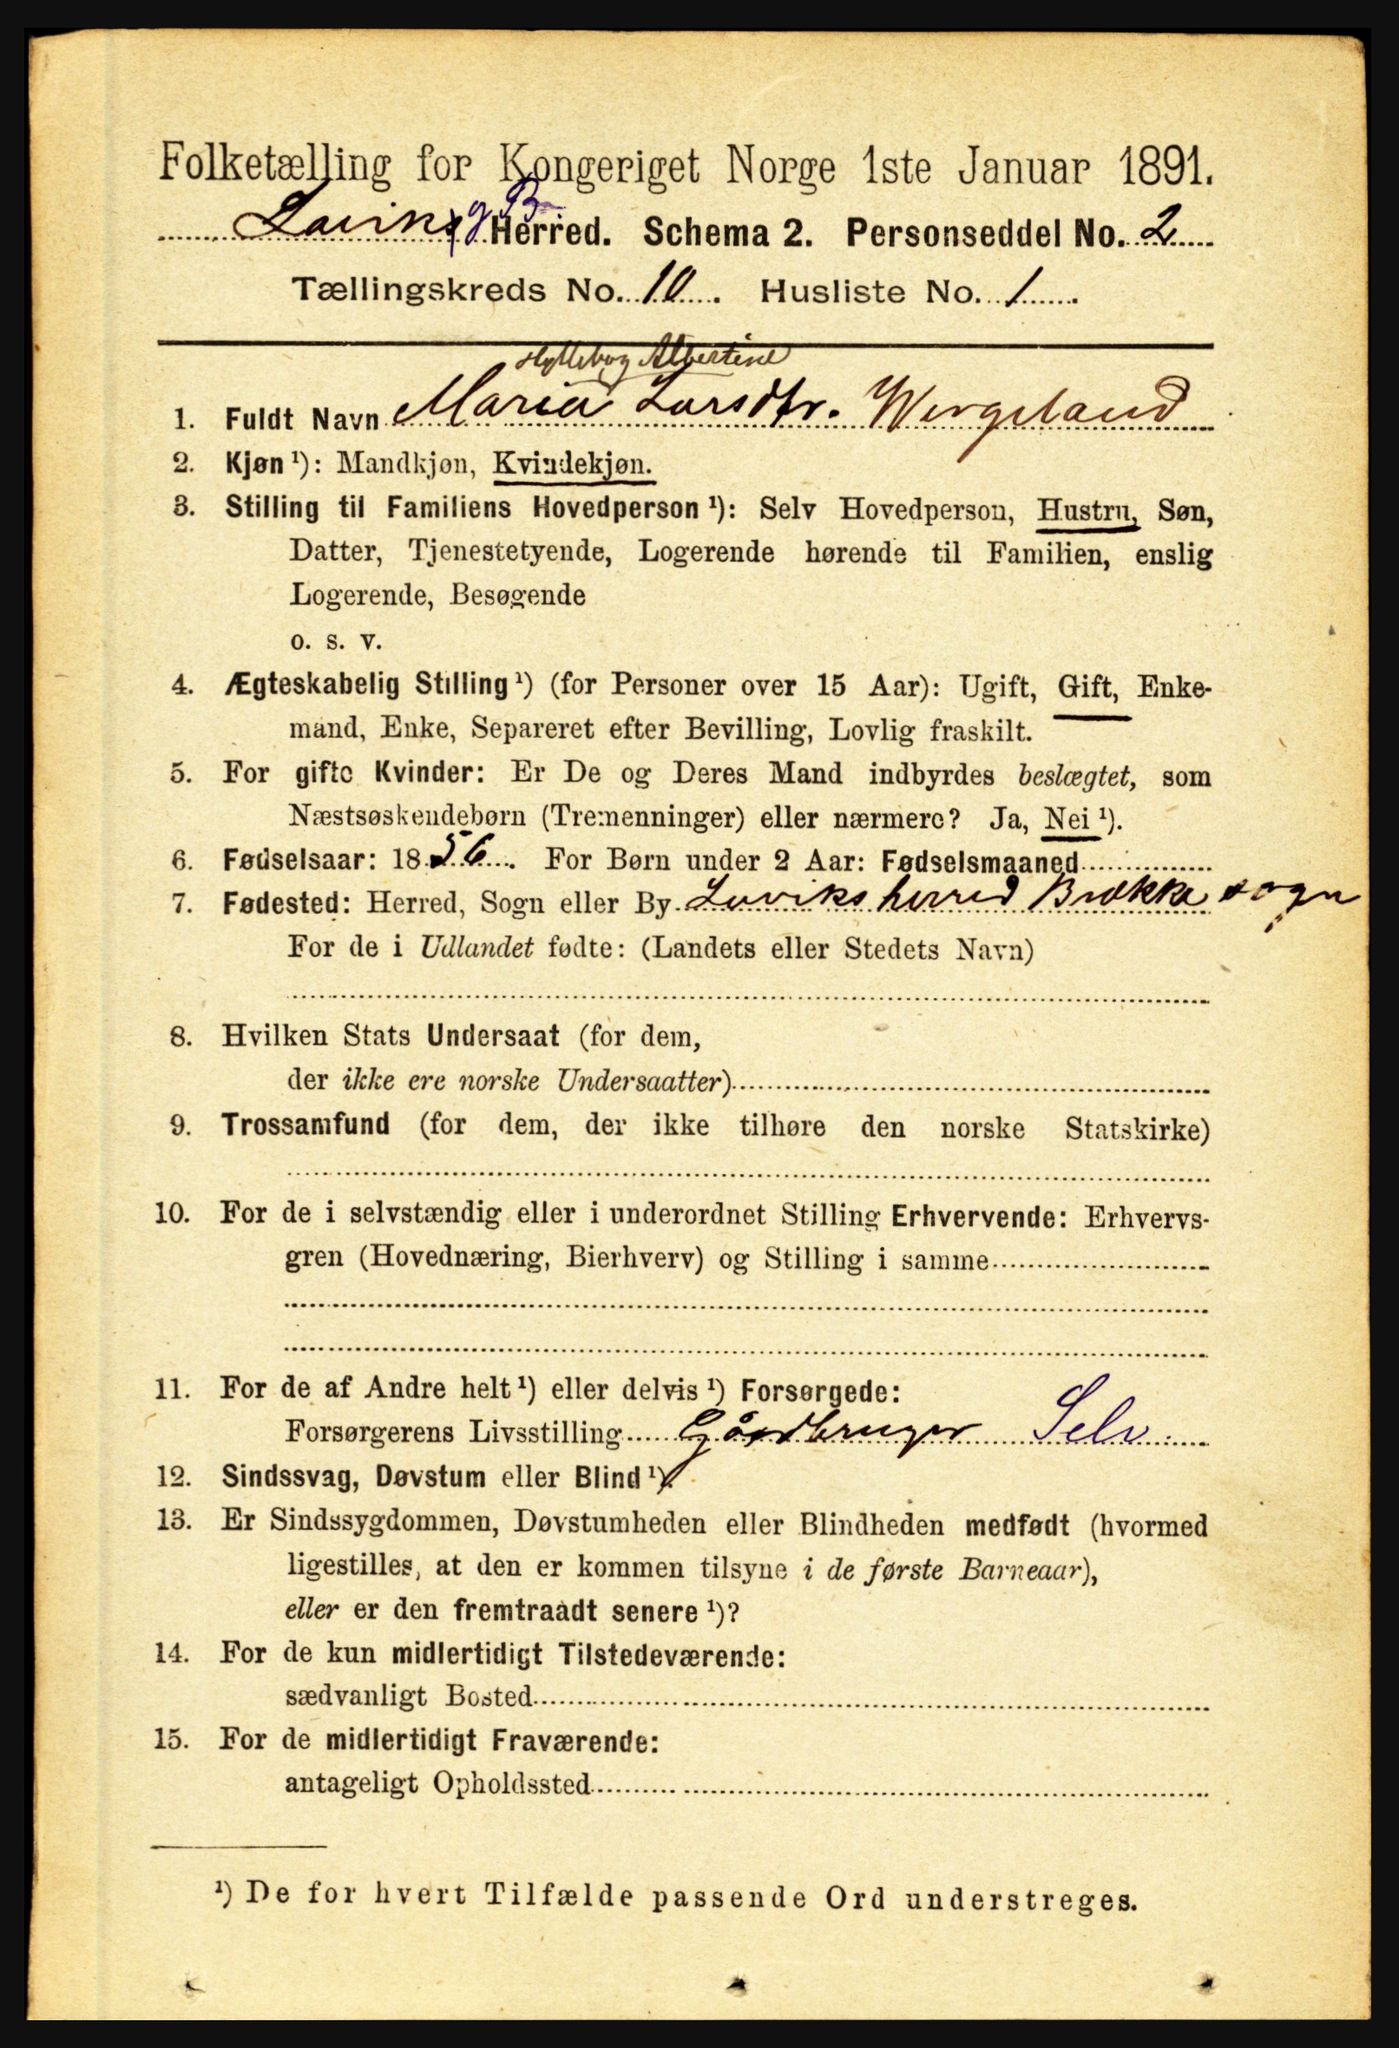 Folketælling for Kongeriget Norge 1ste Januar 1891.
Laviks og B. Herred. Schema 2. Personseddel No. 2
Tællingskreds No. 10. Husliste No. 1
Albertine
1. Fuldt Navn Maria Larsdtr. Wergeland
2. Kjøn ¹): Mandkjøn, Kvindekjøn.
3. Stilling til Familiens Hovedperson ¹): Selv Hovedperson, Hustru, Søn,
Datter, Tjenestetyende, Logerende hørende til Familien, enslig
Logerende, Besøgende
o. s. v.
4. Ægteskabelig Stilling ¹) (for Personer over 15 Aar): Ugift, Gift, Enke-
mand, Enke, Separeret efter Bevilling, Lovlig fraskilt.
5. For gifte Kvinder: Er De og Deres Mand indbyrdes beslægtet, som
Næstsøskendebørn (Tremenninger) eller nærmere? Ja, Nei ¹).
6. Fødselsaar: 1856. For Børn under 2 Aar: Fødselsmaaned
7. Fødested: Herred, Sogn eller By Laviks herred Brække sogn
For de i Udlandet fødte: (Landets eller Stedets Navn)
8. Hvilken Stats Undersaat (for dem,
der ikke ere norske Undersaatter)
9. Trossamfund (for dem, der ikke tilhøre den norske Statskirke)
10. For de i selvstændig eller i underordnet Stilling Erhvervende: Erhvervs-
gren (Hovednæring, Bierhverv) og Stilling i samme
11. For de af Andre helt ¹) eller delvis ¹) Forsørgede:
Forsørgerens Livsstilling Gårdbruger Selv.
12. Sindssvag, Døvstum eller Blind ¹).
13. Er Sindssygdommen, Døvstumheden eller Blindheden medfødt (hvormed
ligestilles, at den er kommen tilsyne i de første Barneaar),
eller er den fremtraadt senere ¹)?
14. For de kun midlertidigt Tilstedeværende:
sædvanligt Bosted
15. For de midlertidigt Fraværende:
antageligt Opholdssted
¹) De for hvert Tilfælde passende Ord understreges.